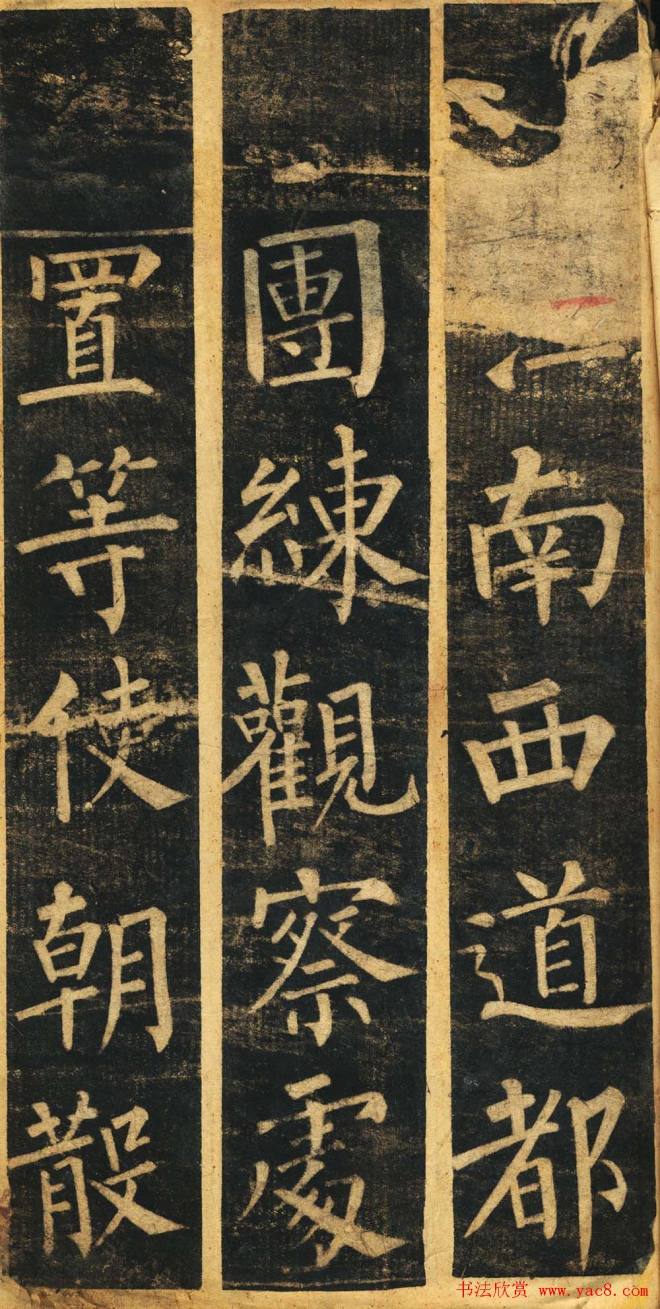 南西道都
團練觀察處
置等使朝散
书法欣赏 www.yac8.com